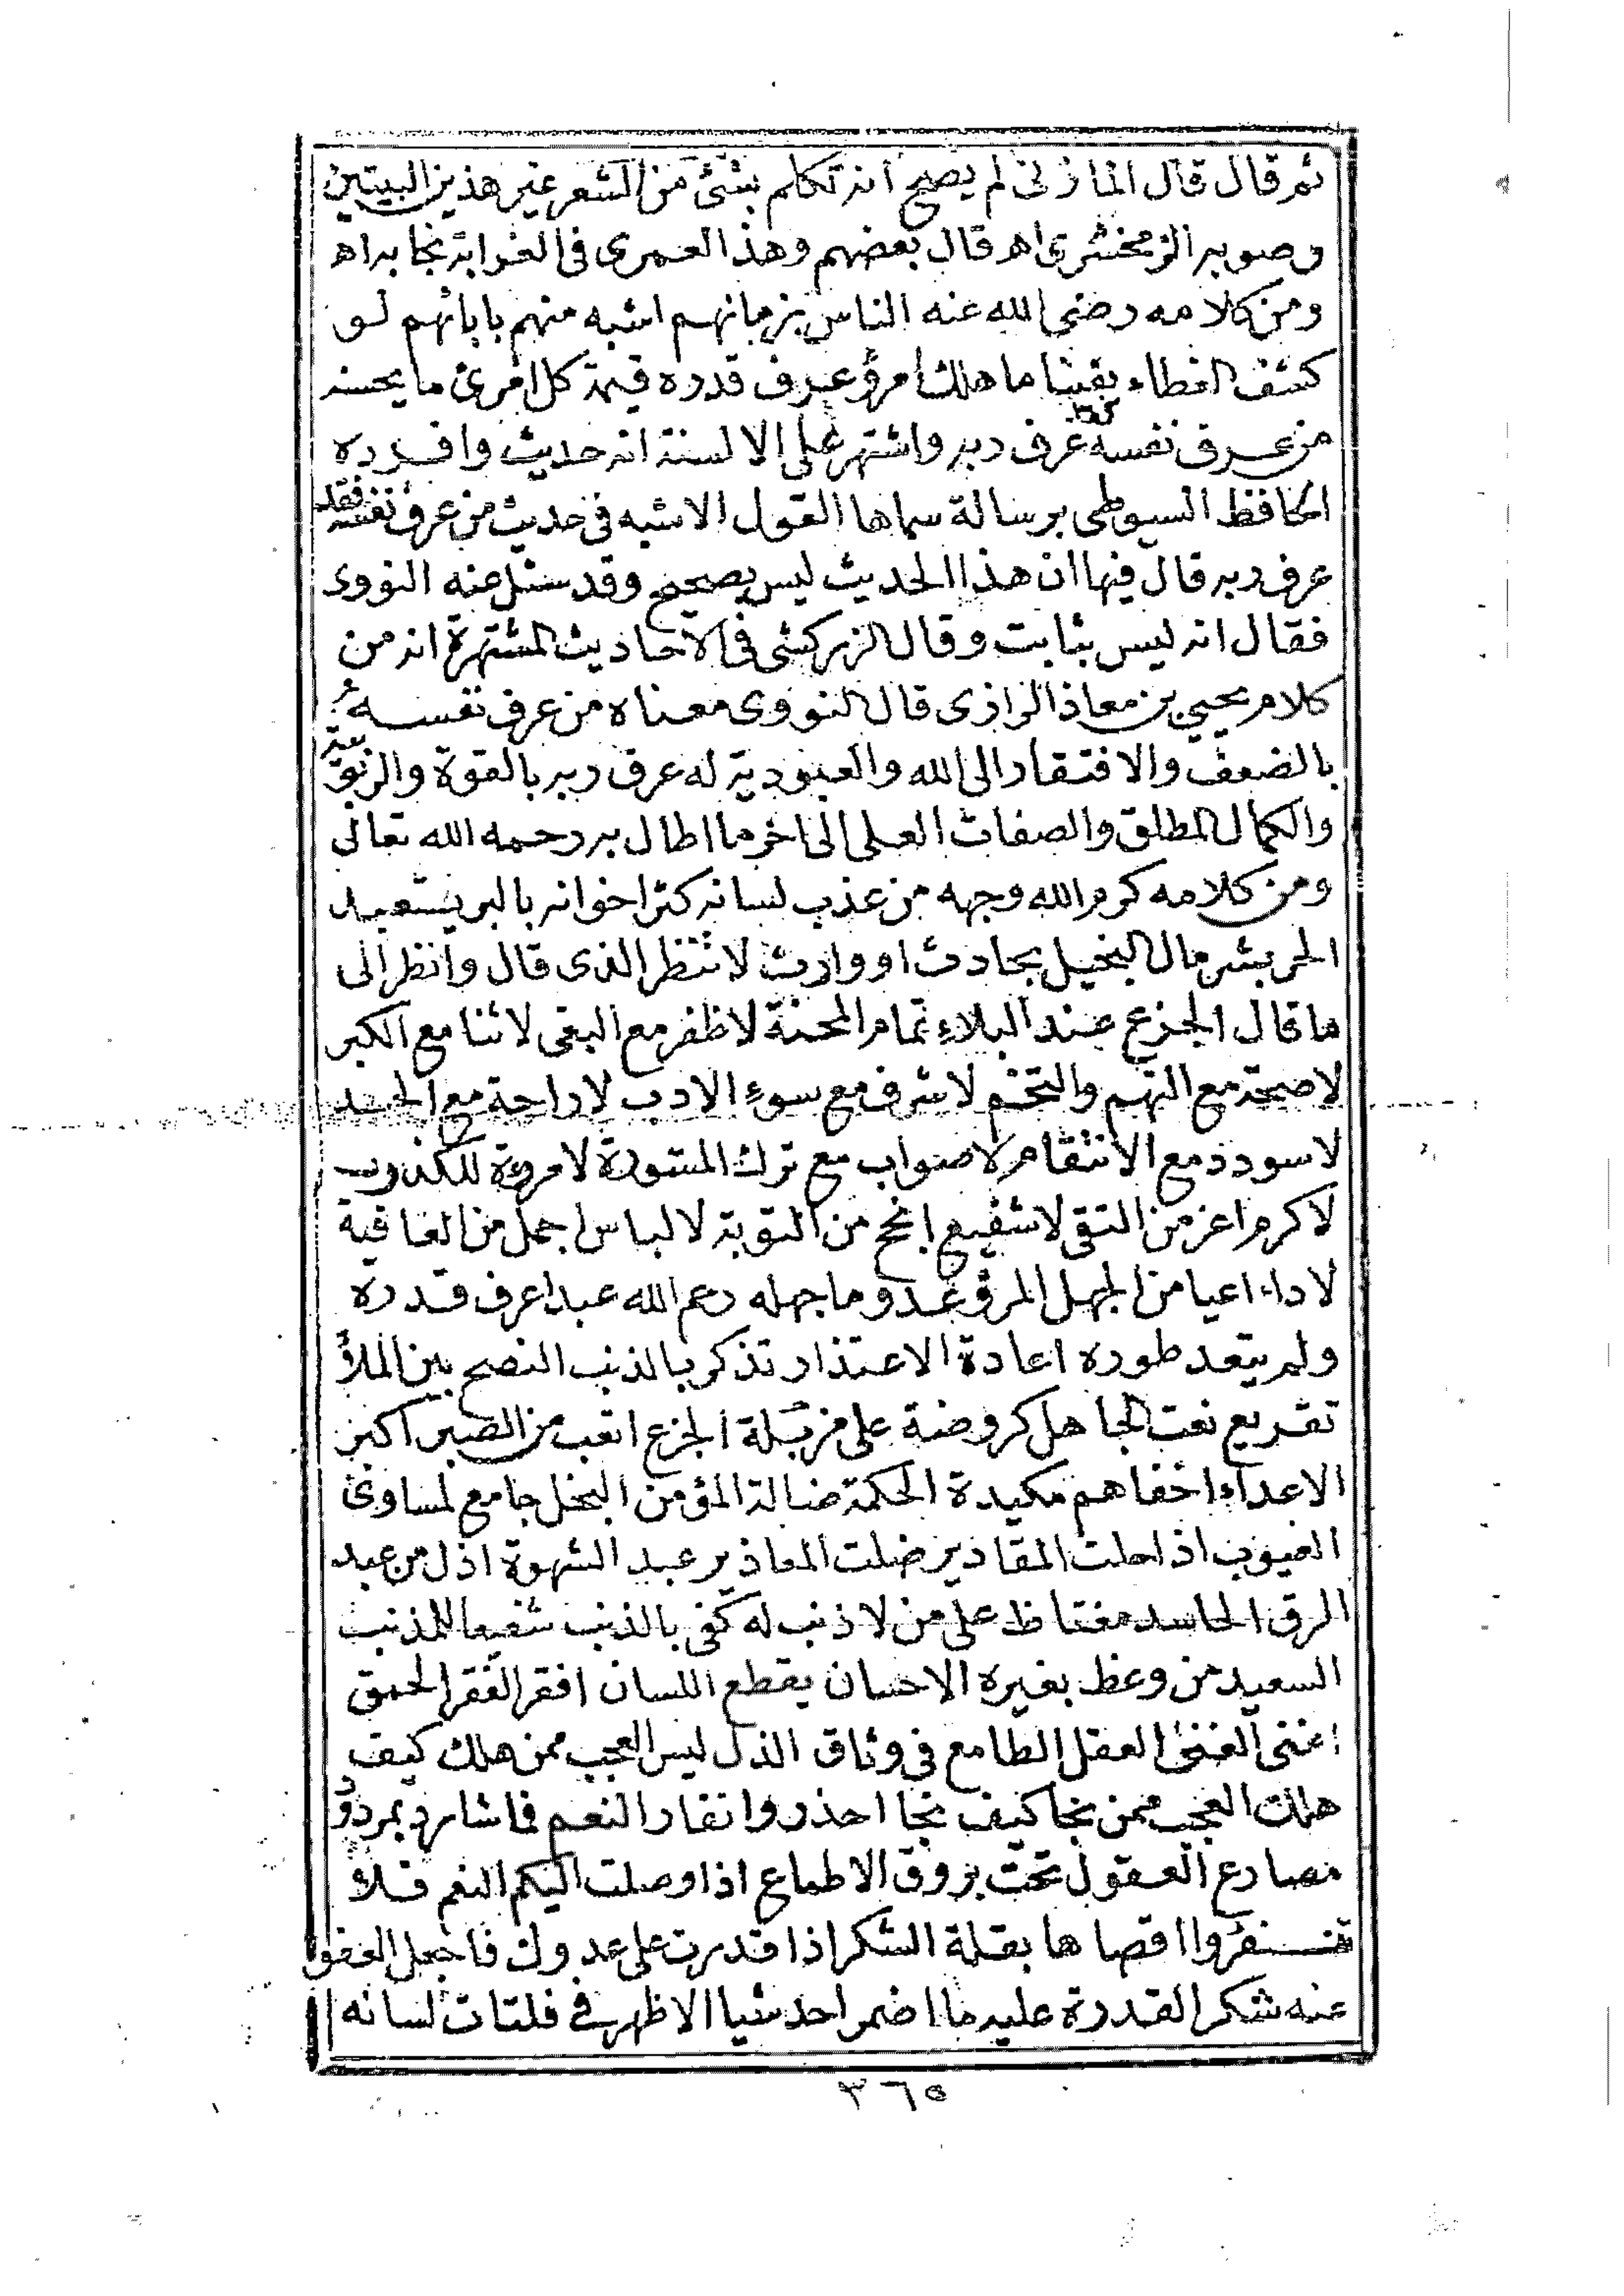 ثم قال قال المازنى لم يصح انه تكلم بشئ من الشعر غير هذين البيتين
وصوبه الزمخشرى اه قال بعضهم وهذا لعمرى فى الغرابة بمكان اه
ومن كلامه رضى الله عنه الناس بزمانهم اشبه منهم بابائهم لو
كشف الغطاء يقينا ما هلك امرؤ عرف قدره قيمة كل امرئ ما يحسنه
من عرف نفسه عرف ربه واشتهر على الالسنة انه حديث وافرده
الحافظ السيوطى برسالة سماها القول الاشبه فى حديث من عرف نفسه فقد
عرف ربه قال فيها ان هذا الحديث ليس بصحيح وقد سئل عنه النووى
فقال انه ليس بثابت وقال الزركشى فى الاحاديث المشتهرة انه من
كلام يحيى بن معاذ الرازى قال النووى معناه من عرف نفسه
بالضعف والافتقار الى الله والعبودية له عرف ربه بالقوة والربوبية
والكمال المطلق والصفات العلى الى اخر ما اطال به رحمه الله تعالى
ومن كلامه كرم الله وجهه من عذب لسانه كثر اخوانه بالبر يستعبد
الحر بشر مال البخيل بحادث او وارث لا تنظر الذى قال وانظر الى
ما قال الجزع عند البلاء تمام المحنة لا ظفر مع البغى لا ثنا مع الكبر
لا صحة مع النهم والتخم لا شرف مع سوء الادب لا راحة مع الحسد
لا سودد مع الانتقام لا صواب مع ترك المشورة لا مروة للكذوب
لا كرم اعز من التقى لا شفيع انجح من التوبة لا لباس اجمل من العافية
لا داء اعيا من الجهل المرؤ عدو ما جهله رحم الله عبدا عرف قدره
ولم يتعد طوره اعادة الاعتذار تذكر بالذنب النصح بين الملأ
تقريع نعت الجاهل كروضة على مزبلة الجزع اتعب من الصبر اكبر
الاعداء اخفاهم مكيدة الحكمة ضالة المؤمن البخل جامع لمساوئ
العيوب اذا حلت المقادير ضلت المعاذير عبد الشهوة اذل من عبد
الرق الحاسد مغتاظ على من لا ذنب له كفى بالذنب شفيعا للمذنب
السعيد من وعظ بغيره الاحسان يقطع اللسان افقر الفقر الحمق
اغنى الغنى العقل الطامع فى وثاق الذل ليس العجب ممن هلك كيف
هلك العجب ممن نجا كيف نجا احذروا نفار النعم فما شارد بمردود
مصارع العقول تحت بروق الاطماع اذا وصلت اليكم النعم فلا
تنفروا اقصاها بقلة الشكر اذا قدرت على عدوك فاجعل العفو
عنه شكر القدرة عليه ما اضمر احد شيا الا ظهر فى فلتات لسانه
٣٦٥